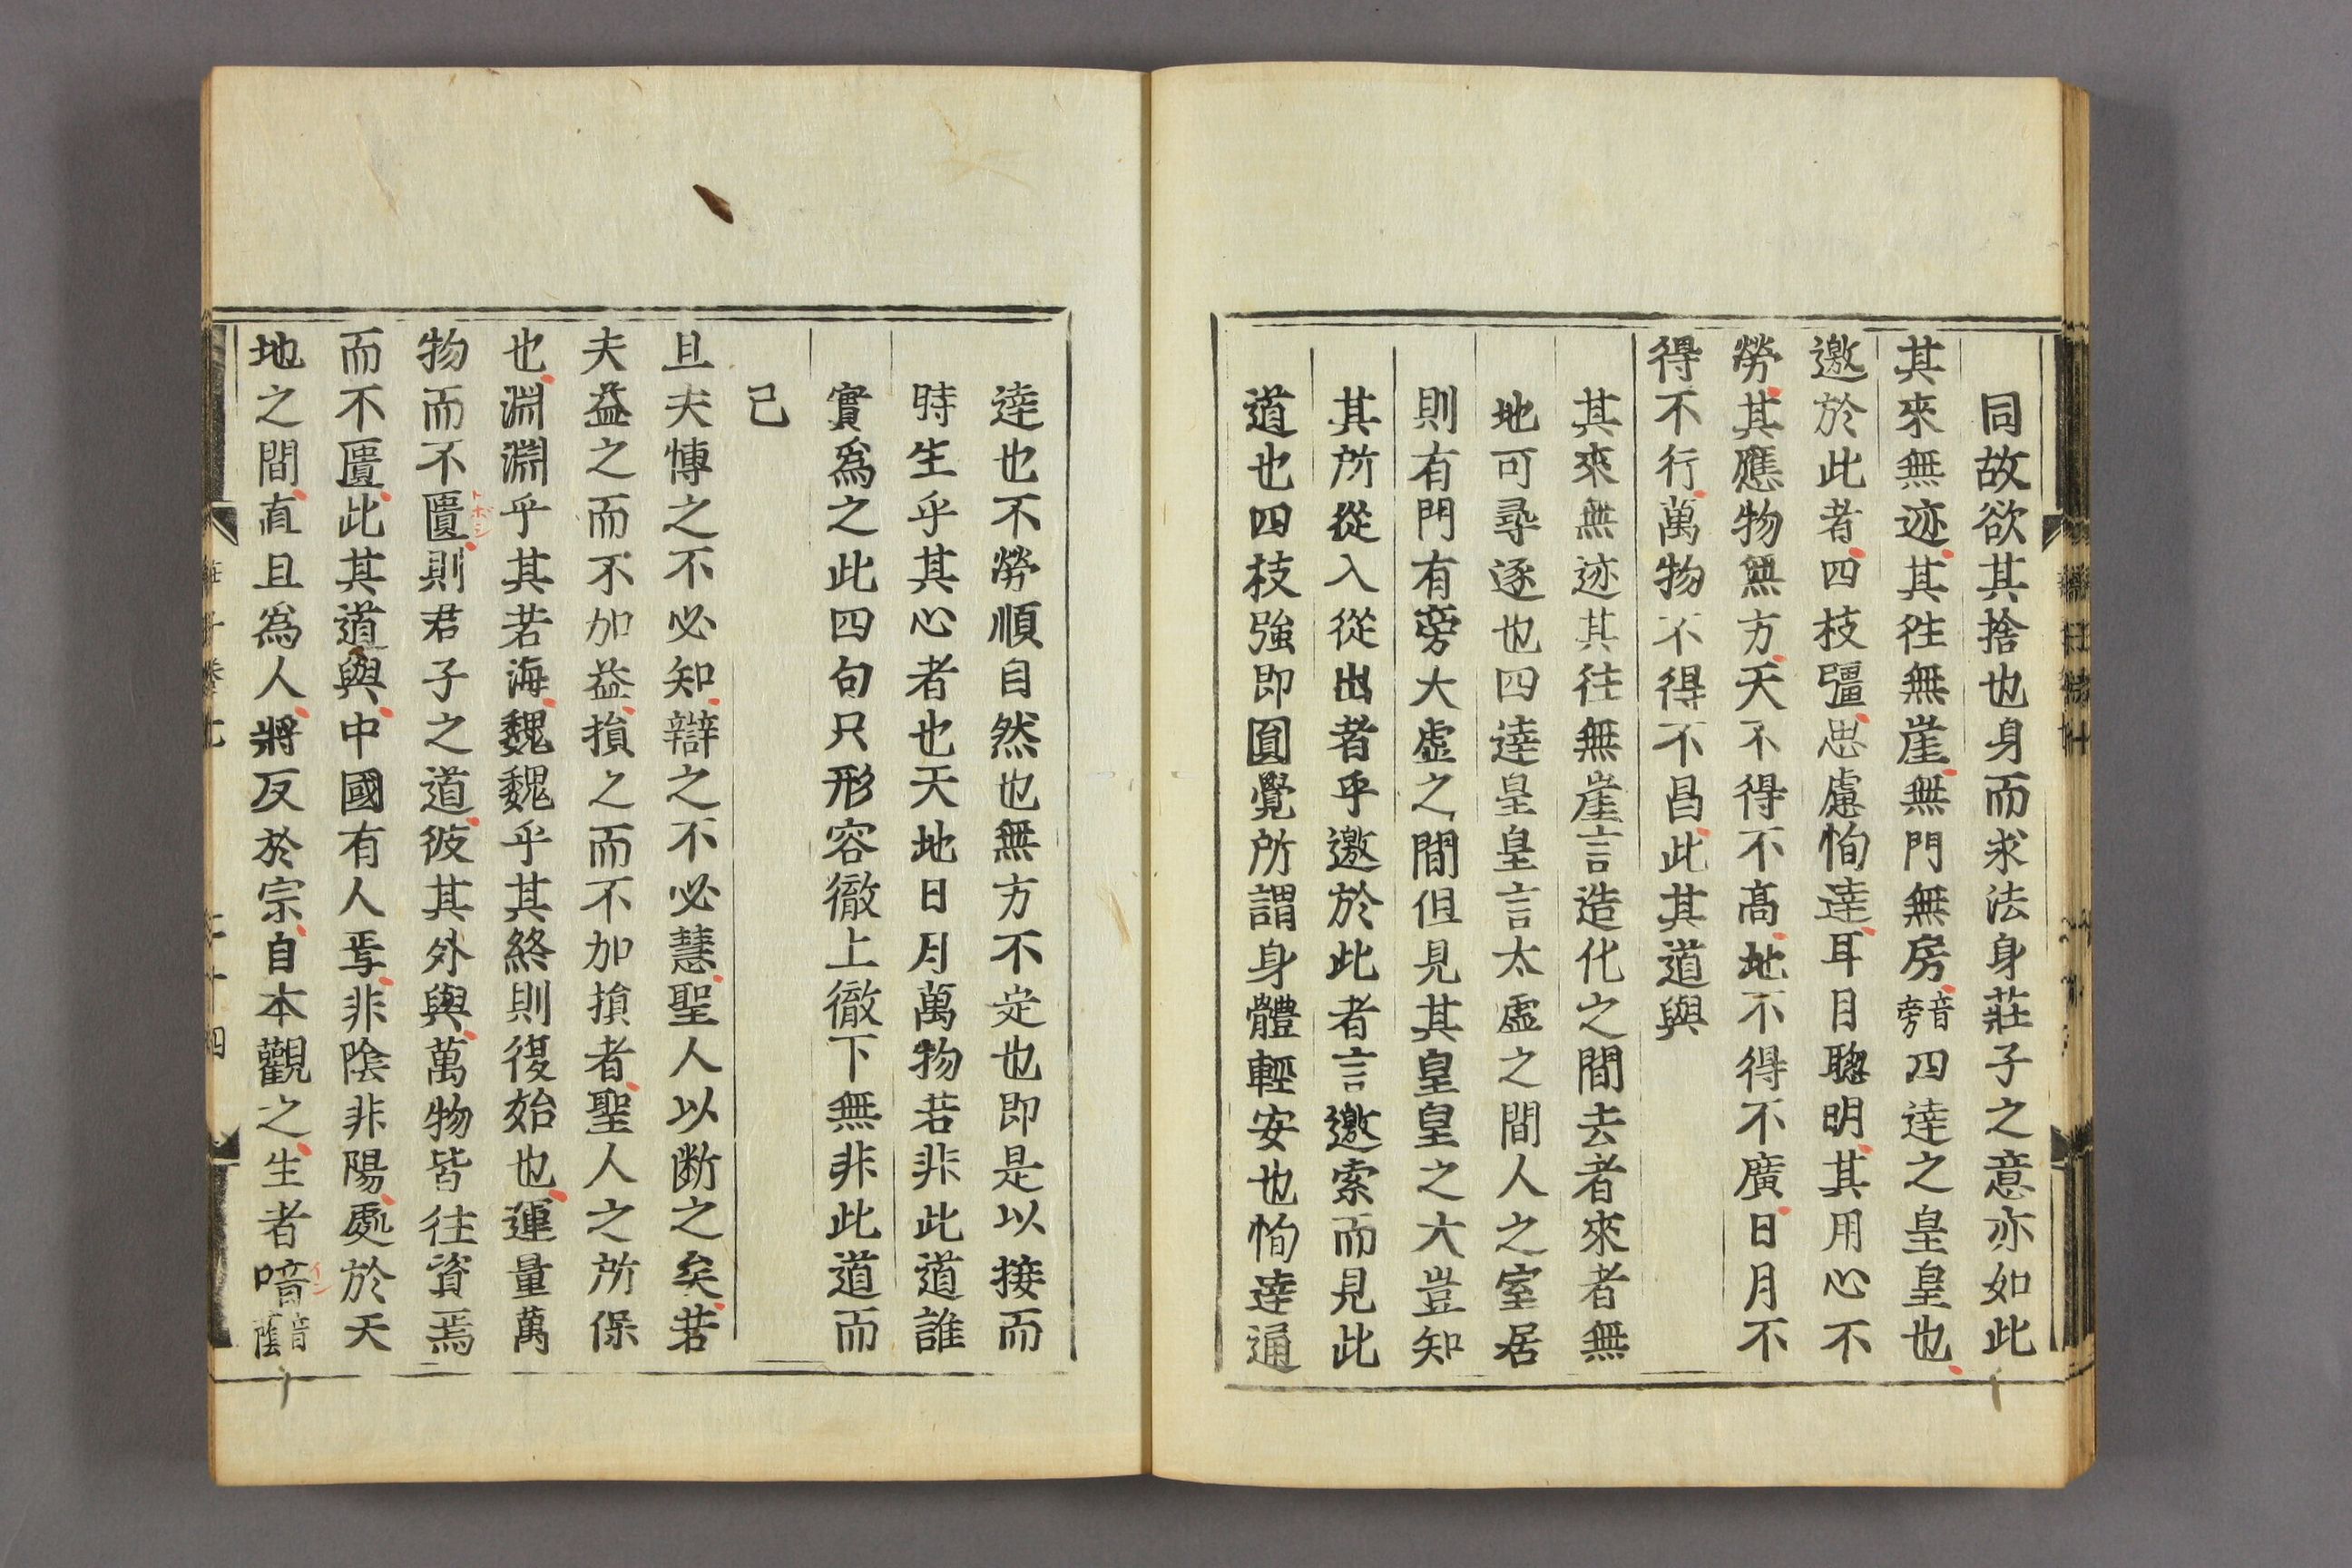 同故欲其捨也身而求法身莊子之意亦如此
其來無迹其徃無崖無門無房音旁四逹之皇皇也
邀於此者四枝彊思慮恂逹耳目聰明其用心不
勞其應物無方天不得不髙地不得不廣日月不
得不行萬物不得不昌此其道與
其來無迹其徃無崖言造化之間去者來者無
地可尋逐也四逹皇皇言太虛之間人之室居
則有門有旁大虛之間但見其皇皇之大豈知
其所從入從出者乎邀於此者言邀索而見此
道也四枝強即圓覺所謂身體輕安也恂逹通
逹也不勞順自然也無方不定也即是以接而
時生乎其心者也天地日月萬物若非此道誰
實爲之此四句只形容徹上徹下無非此道而
已
且夫慱之不必知辯之不必慧聖人以断之矣若
夫益之而不加益損之而不加損者聖人之所保
也淵淵乎其若海魏魏乎其終則復始也運量萬
物而不匱則君子之道彼其外與萬物皆徃資焉
而不匱此其道與中國有人焉非隂非陽處於天
地之間直且爲人將反於宗自本觀之生者喑音蔭
莊子卷七 二十四